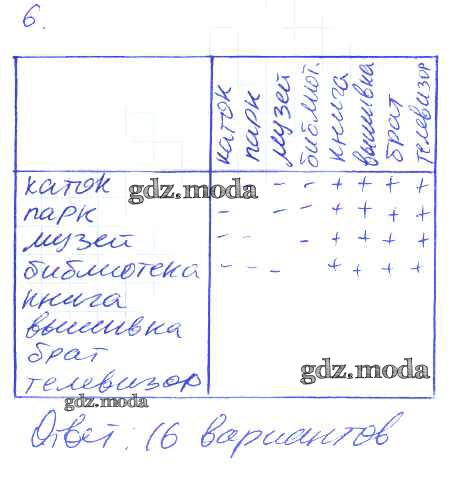 6.
каток парк музей библиот. книга вышивка брат телевизор
каток - - + + + +
gdz.moda
парк - - - + + + +
музей - - - + + + +
библиотека - - - + + + +
книга
вышивка
брат
gdz.moda
телевизор
gdz.moda
Ответ: 16 вариантов